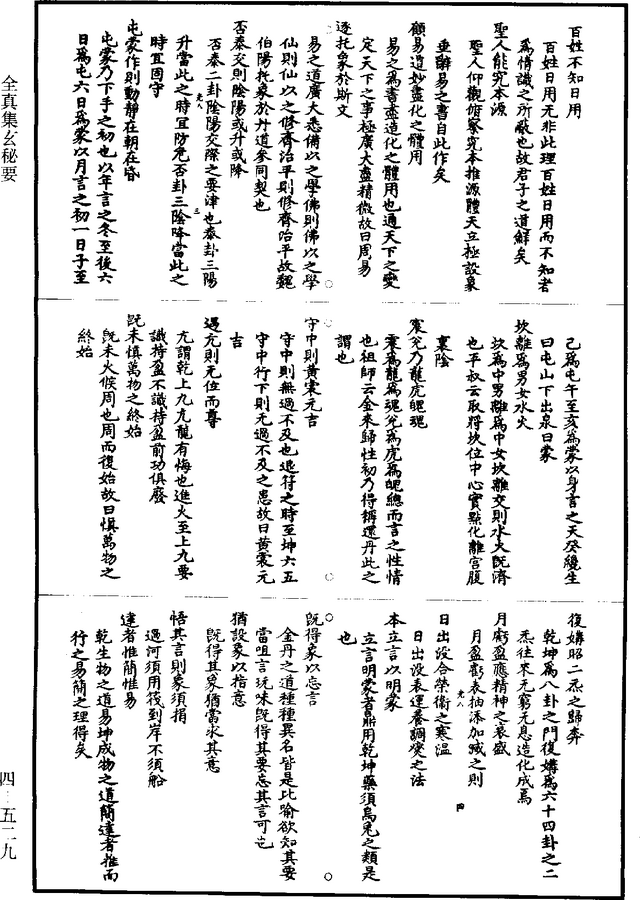 全真集玄秘要
百姓不知日用
百姓日用无非此理百姓日用而不知者
爲情識之所蔽也故君子之道鮮矣
聖人能究本源
聖人仰觀俯察究本推源體天立極設象
垂辭易之書自此作矣
顧易道妙盡化之體用
易之爲書盡造化之體用也通天下之變
定天下之事極廣大盡精微故曰周易
遂托象於斯文
易之道廣大悉備以之學佛則佛以之學
仙則仙以之修齊治平則修齊治平故魏
伯陽托象於丹道參同契也
否泰交則陰陽或升或降
否泰二卦陰陽交際之要津也泰卦三陽
升當此之時宜防危否卦三陰降當此之
時宜固守
屯蒙作則動靜在朝在昏
屯蒙乃下手之初也以年言之冬至後六
日爲屯六日爲蒙以月言之初一日子至
己爲屯午至亥爲蒙以身言之天癸纔生
曰屯山下出泉曰蒙
坎離爲男女水火
坎爲中男離爲中女坎離交則水火既濟
也平叔云取將坎位中心實點化離宮腹
裏陰
震兌乃龍虎魄魂
震爲龍爲魂兌爲虎爲魄總而言之性情
也祖師云金來歸性初乃得稱還丹此之
謂也
守中則黃裳元吉
守中則無過不及也退符之時至坤六五
守中行下則无過不及之患故曰黃裳元
吉
遇亢則无位而尊
亢謂乾上九亢龍有悔也進火至上九要
識持盈不識持盈前功俱廢
既未慎萬物之終始
既未火候周也周而復始故曰慎萬物之
終始
復姤昭二炁之歸奔
乾坤爲八卦之門復姤爲六十四卦之二
炁往來无窮无息造化成焉
月虧盈應精神之衰盛
月盈虧表抽添加減之則
日出没合榮衞之寒溫
日出没表運養調爕之法
本立言以明象
立言明蒙者鼎用乾坤藥須烏兔之類是
也
既得象以忘言
金丹之道種種異名皆是比喻欲知其要
當咀言玩味既得其要忘其言可也
猶設象以指意
既得其象猶當求其意
悟其言則象須捐
過河須用筏到岸不須船
達者惟簡惟易
乾生物之道易坤成物之道簡達者推而
行之易簡之理得矣
四‥五二九